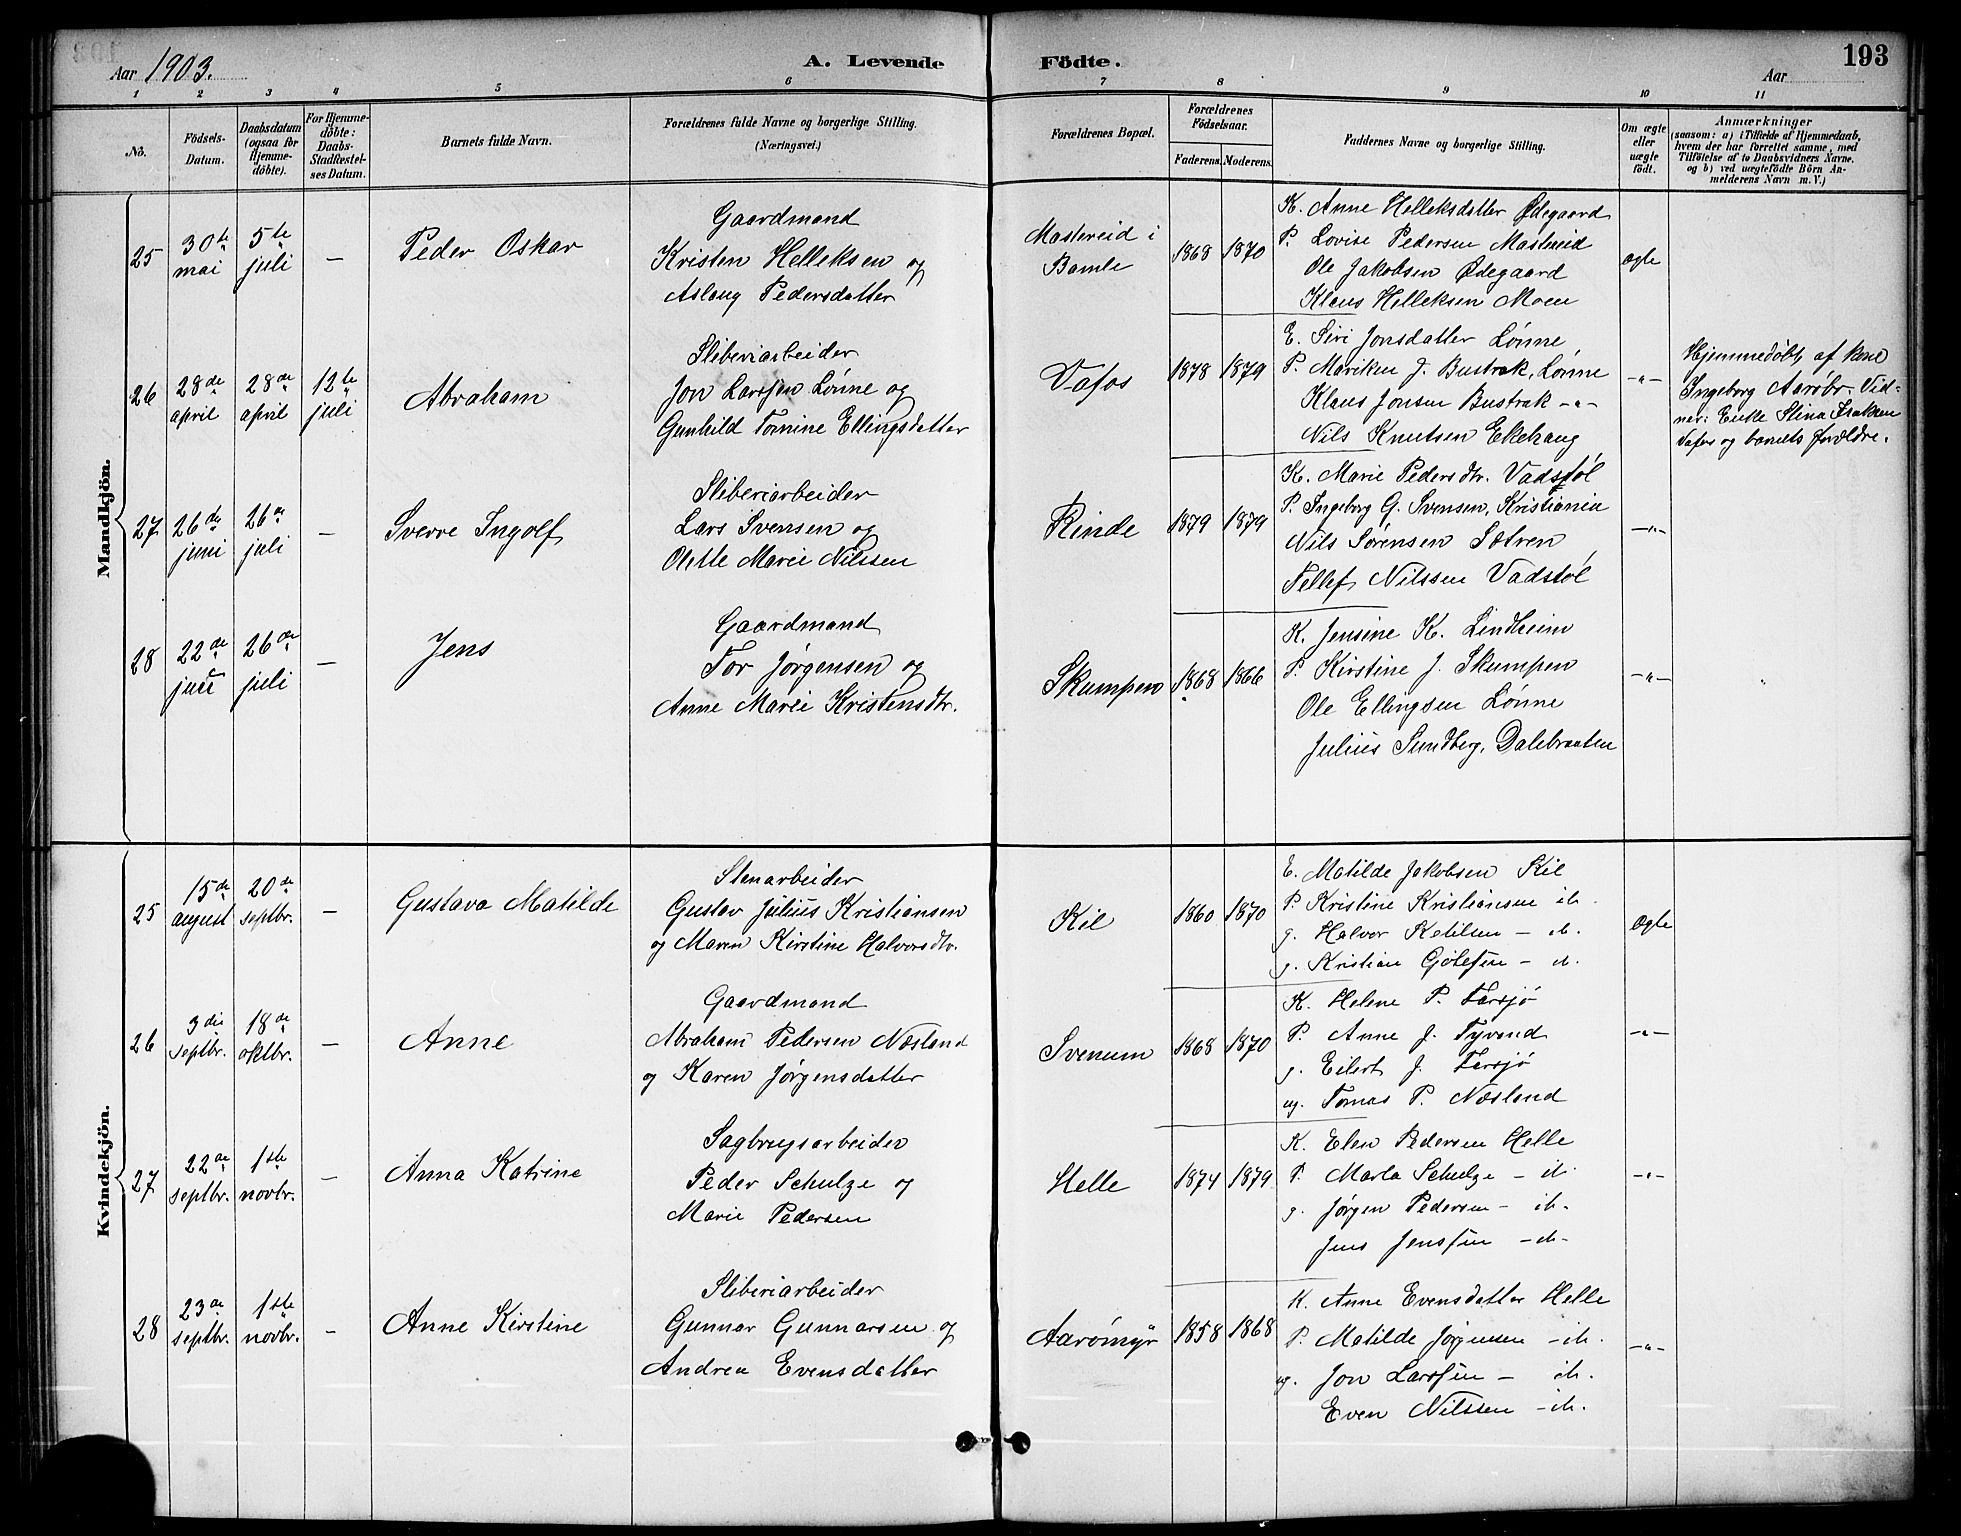 Aar 1903.
A. Levende
Födte.
Aar
193
1 2 3 4 5 6 7 8 9 10 11
No.
Födsels-Datum.
Daabsdatum (ogsaa for Hjemme-döbte).
For Hjemme-döbte: Daabs-Stadfæstel-ses Datum.
Barnets fulde Navn.
Forældrenes fulde Navne og borgerlige Stilling.
(Næringsvei.)
Forældrenes Bopæl.
Forældrenes Födselsaar.
Faderens. Moderens.
Faddernes Navne og borgerlige Stilling.
Om ægte eller uægte födt.
Anmærkninger
(saasom: a) i Tilfælde af Hjemmedaab,
hvem der har forrettet samme, med
Tilföielse af to Daabsvidners Navne.
og b) ved uægtefödte Börn An-
melderens Navn m. V.)
Mandkjön.
25
30te mai
5te juli
—
Peder Oskar
Gaardmand
Kristen Helleksen og
Aslaug Pedersdatter
Mastereid i
Bamle
1868 1870
K. Anne Helleksdatter Ødegaard
P. Lovise Pedersen Mastereid
Ole Jakobsen Ødegaard
Klaus Helleksen Moen
ægte
26
28de april
28de april
12te juli
Abraham
Sliberiarbeider
Jon Larssen Lønne og
Gunhild Tomine Ellingsdatter
Vafos
1878 1879
E. Siri Jonsdatter Lønne
P. Mariken J. Bustrak, Lønne
Klaus Jonsen Bustrak -"-
Nils Knutsen Ekehaug
-"-
Hjemmedøbt af kone
Ingeborg Aarøbr. Vid-
ner: Enke Stina Isaksen
Vafos og barnets forældre.
27
26de juni
26de juli
—
Sverre Ingolf
Sliberiarbeider
Lars Svensen og
Olette Marie Nilssen
Rinde
1879 1879
K. Marie Pedersdtr. Vadstøl
P. Ingeborg G. Svensen, Kristiania
Nils Sørensen Sætren
Tellef Nilssen Vadstøl
-"-
28
22de juni
26de juli
—
Jens
Gaardmand
Tor Jørgensen og
Anne Marie Kristensdtr.
Skumpen
1868 1866
K. Jensine K. Lindheim
P. Kirstine J. Skumpen
Ole Ellingsen Lønne
Julius Sundberg, Dalebraaten
-"-
Kvindekjön.
25
15de august
20de septbr.
—
Gustava Matilde
Stenarbeider
Gustav Julius Kristiansen
og Maren Kirstine Halvorsdtr.
Kil
1860 1870
E. Matilde Jakobsen Kil
P. Kristine Kristiansen ib.
g. Halvor Ketilsen - ib.
g. Kristian Gjølesen - ib.
Ægte
26
3die septbr.
18de oktbr.
—
Anne
Gaardmand
Abraham Pedersen Næsland
og Karen Jørgensdatter
Svenum
1868 1870
K. Helene P. Farsjø
P. Anne J. Tyvand
g. Eilert J. Farsjø
ug. Tomas P. Næsland
-"-
27
22de septbr.
1ste novbr.
—
Anna Katrine
Sagbrugsarbeider
Peder Schulze og
Marie Pedersen
Helle
1874 1879
K. Elen Pedersen Helle
P. Marta Schulze - ib.
g. Jørgen Pedersen - ib.
Jens Jenssen - ib.
-"-
28
23de septbr.
1ste novbr.
—
Anne Kirstine
Sliberiarbeider
Gunnar Gunnarsen og
Andrea Evensdatter
Aarømyr
1858 1868
K. Anne Evensdatter Helle
P. Matilde Jørgensen - ib.
ug. Jon Larssen - ib.
Even Nilssen - ib.
-"-